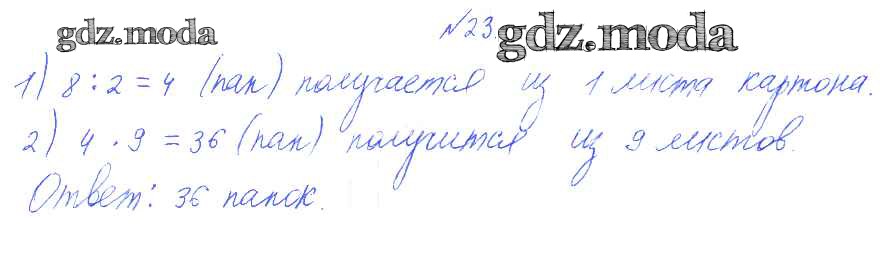 gdz.moda №23. gdz.moda
1) 8 : 2 = 4 (пап) получается из 1 листа картона.
2) 4 · 9 = 36 (пап) получится из 9 листов.
Ответ: 36 папок.